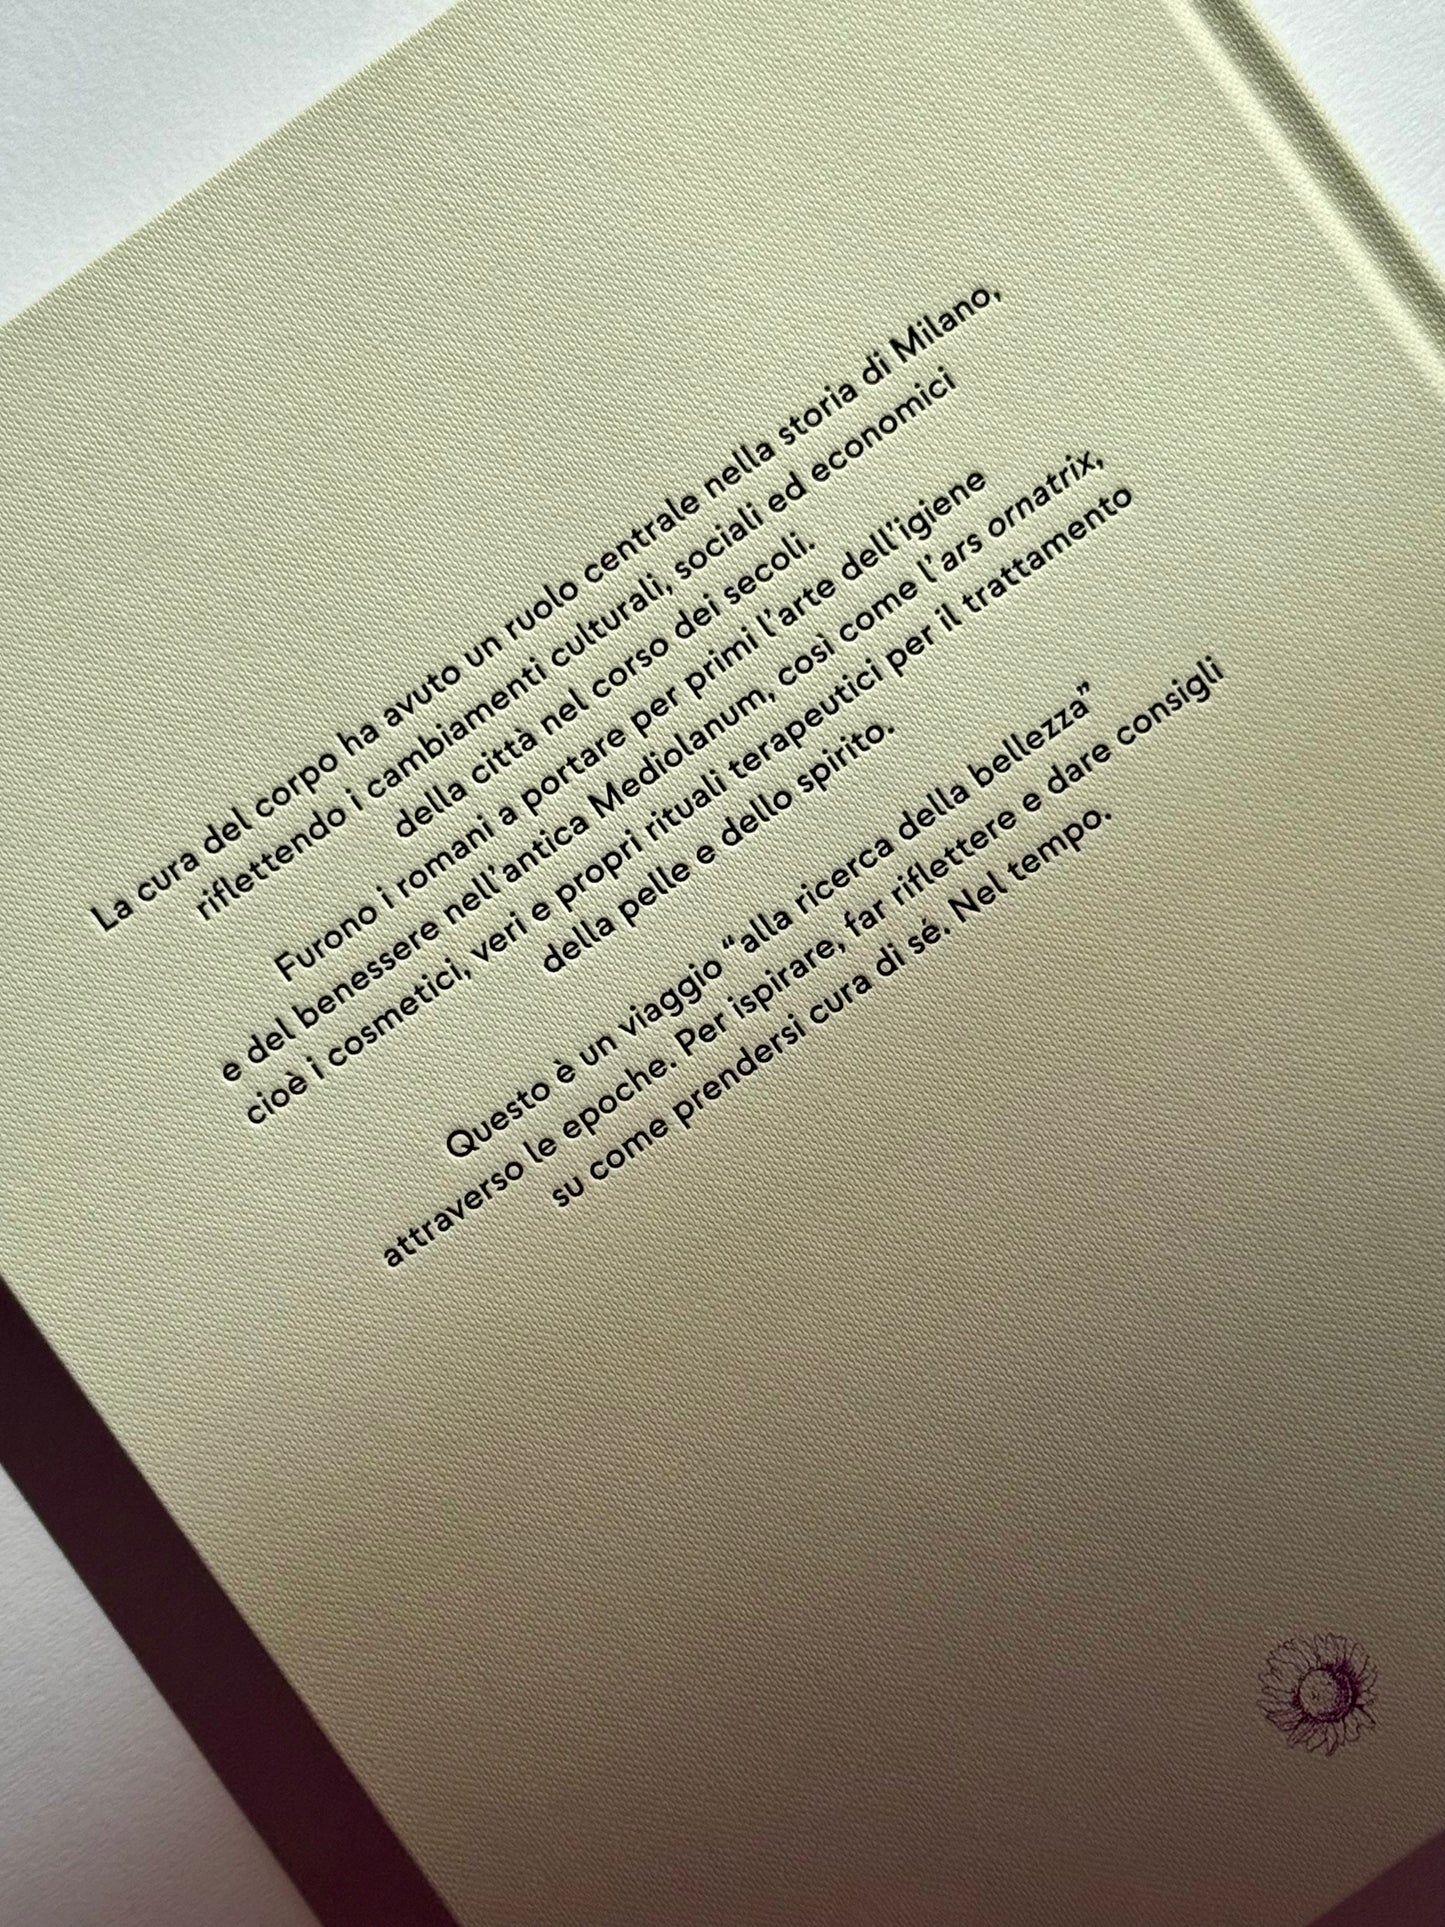 La cura del corpo ha avuto un ruolo centrale nella storia di Milano,
riflettendo i cambiamenti culturali, sociali ed economici
della città nel corso dei secoli.
Furono i romani a portare per primi l’arte dell’igiene
e del benessere nell’antica Mediolanum, così come l’ars ornatrix,
cioè i cosmetici, veri e propri rituali terapeutici per il trattamento
della pelle e dello spirito.
Questo è un viaggio “alla ricerca della bellezza”
attraverso le epoche. Per ispirare, far riflettere e dare consigli
su come prendersi cura di sé. Nel tempo.